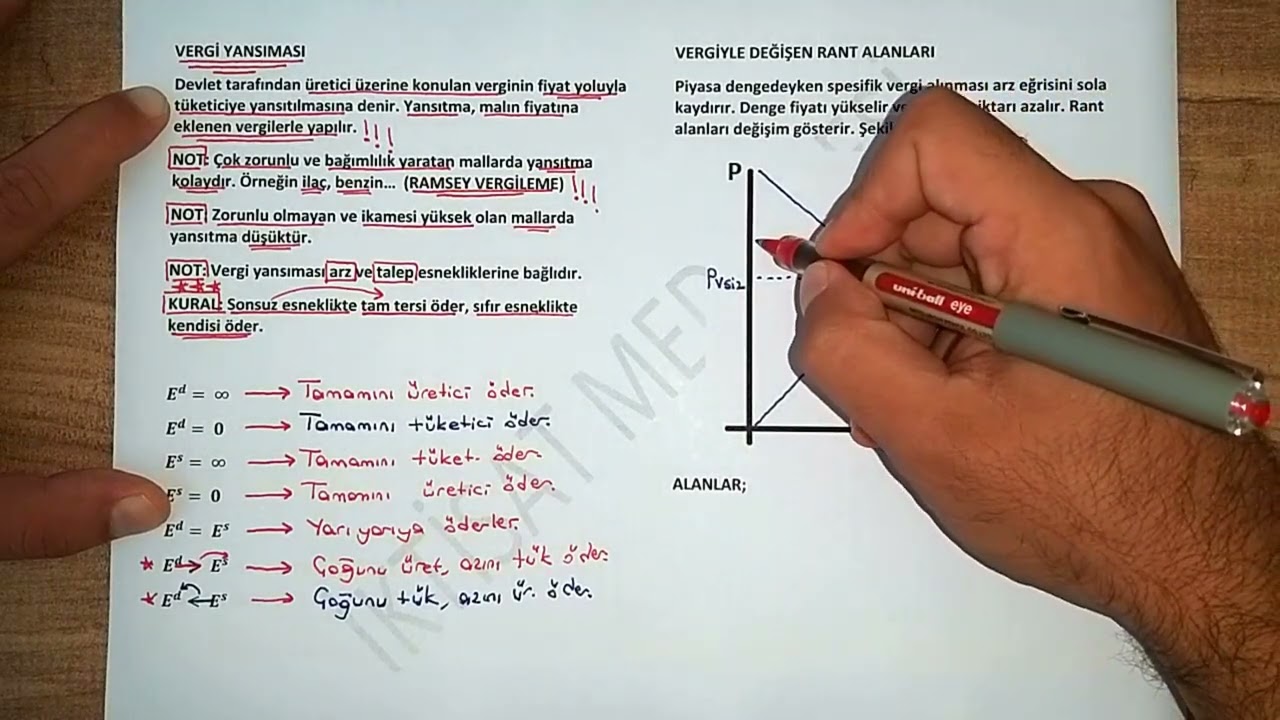 VERGİ YANSIMASI
Devlet tarafından üretici üzerine konulan verginin fiyat yoluyla
tüketiciye yansıtılmasına denir. Yansıtma, malın fiyatına
eklenen vergilerle yapılır. !!!
NOT: Çok zorunlu ve bağımlılık yaratan mallarda yansıtma
kolaydır. Örneğin ilaç, benzin... (RAMSEY VERGİLEME) !!!
NOT: Zorunlu olmayan ve ikamesi yüksek olan mallarda
yansıtma düşüktür.
NOT: Vergi yansıması arz ve talep esnekliklerine bağlıdır.
KURAL: Sonsuz esneklikte tam tersi öder, sıfır esneklikte
kendisi öder.
Eᵈ = ∞ → Tamamını üretici öder.
Eᵈ = 0 → Tamamını tüketici öder.
Eˢ = ∞ → Tamamını tüket. öder.
Eˢ = 0 → Tamamını üretici öder.
Eᵈ = Eˢ → Yarı yarıya öderler.
* Eᵈ > Eˢ → Çoğunu üret, azını tük öder.
* Eᵈ < Eˢ → Çoğunu tük, azını ür. öder.
VERGİYLE DEĞİŞEN RANT ALANLARI
Piyasa dengedeyken spesifik vergi alınması arz eğrisini sola
kaydırır. Denge fiyatı yükselir azalır. Rant
alanları değişim gösterir.
P
Pvsiz
ALANLAR;
uni-ball eye
İKTİSAT